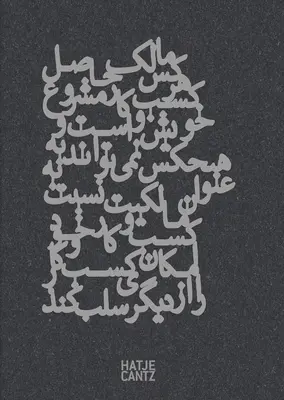 هر کس مالک حاصل
کسب و کار مشروع
خویش است و
هیچکس نمی تواند به
عنوان مالکیت نسبت به
کسب و کار خود
امکان کسب و کار
را از دیگری سلب کند
HATJE
CANTZ